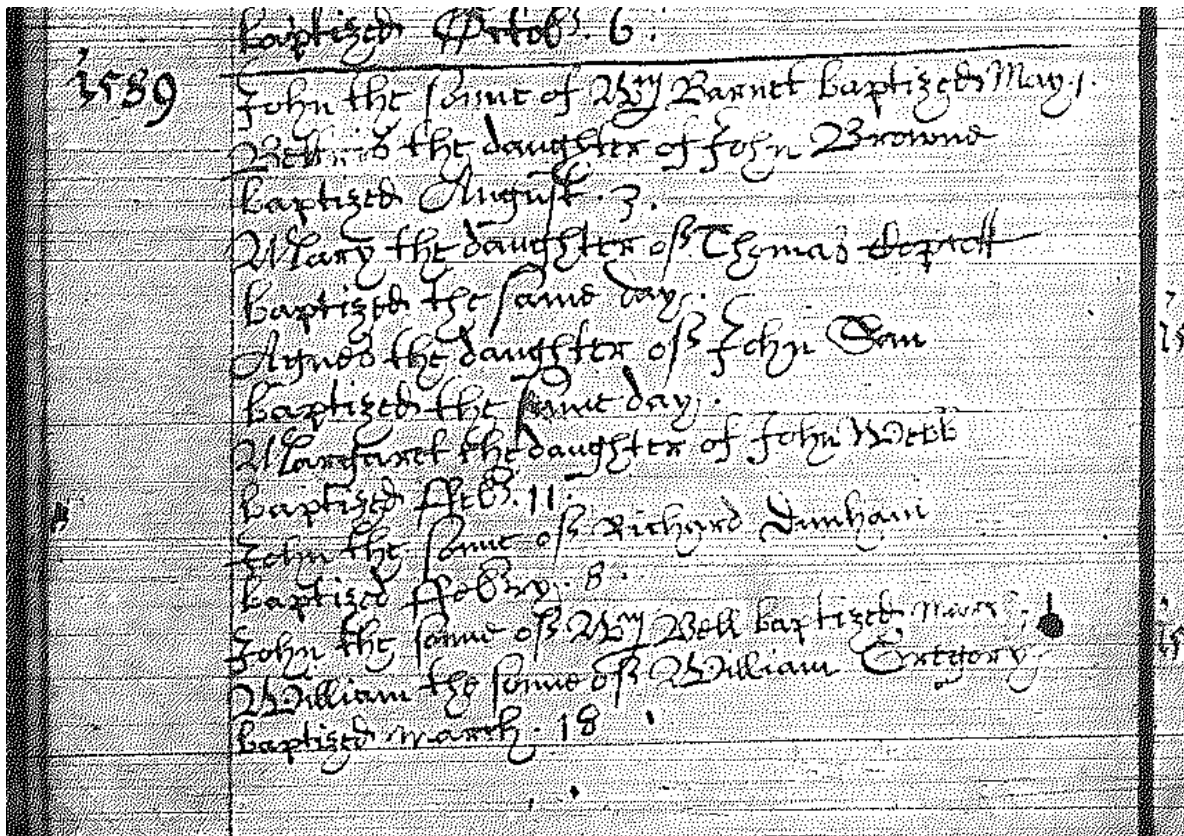 baptized Octob. 6.
1589
John the sonne of Wm Barnet baptized May. 1.
the daughter of John Browne
baptized August. 3.
Mary the daughter of Thomas
baptized the same day.
Agnes the daughter of John
baptized the same day.
Margaret the daughter of John Webb
baptized ffeb. 11.
John the sonne of Richard Dunham
baptized ffebry. 8.
John the sonne of Wm Bell baptized
William the sonne of William Gregory
baptized March. 18